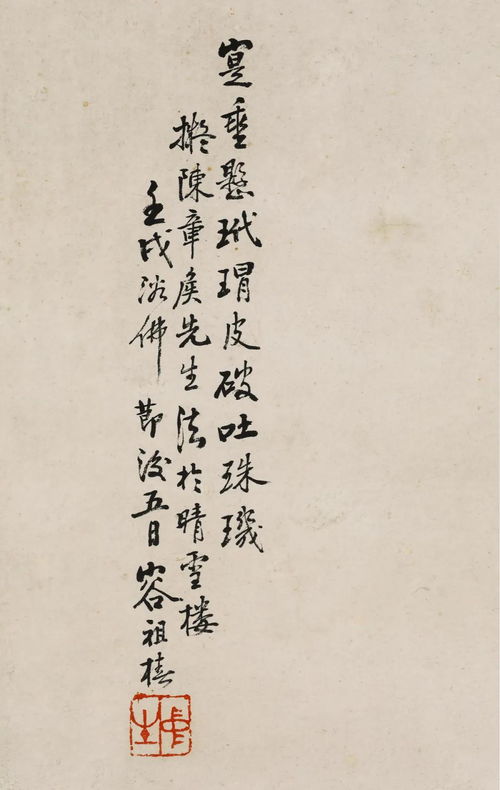 寔垂懸玳瑁皮破吐珠璣
擬陳章侯先生法於晴雪樓
壬戌浴佛節後五日容祖椿